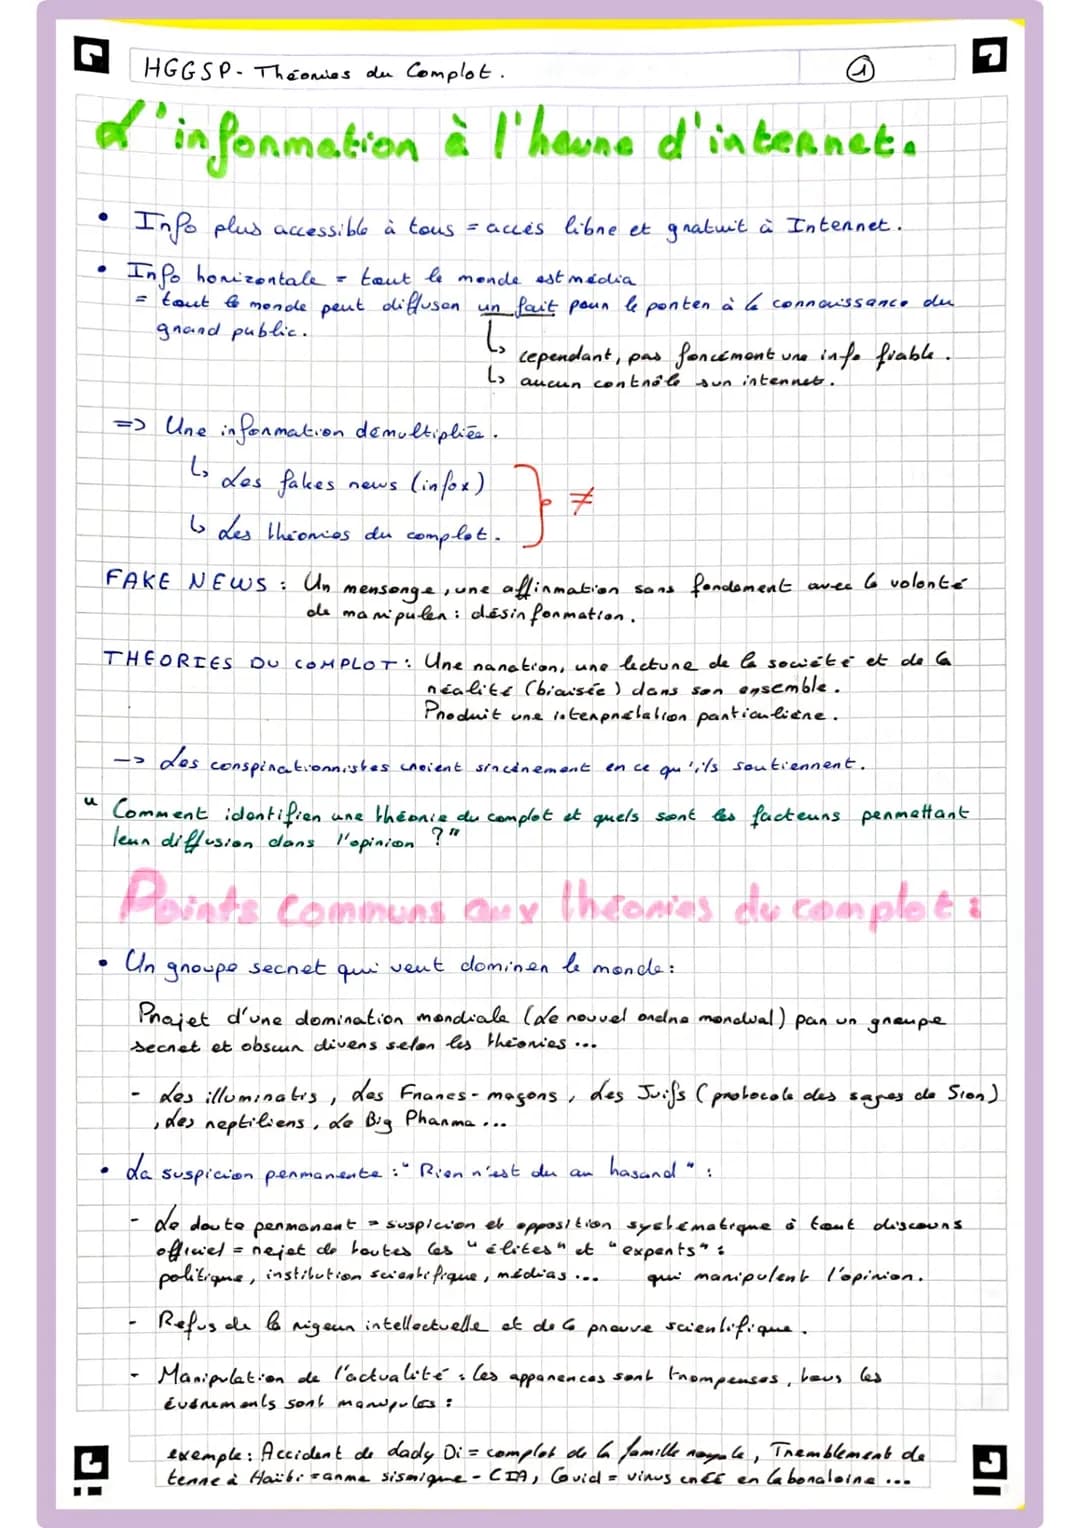 HGGSP - Théories du Complot.
1
L'information à l'heure d'internet.
• Info plus accessible à tous = accès libre et gratuit à Internet.
• Info horizontale = tout le monde est média
= tout le monde peut diffuser un fait pour le porter à la connaissance du
grand public.
↳ cependant, pas forcément une info fiable.
↳ aucun contrôle sur internet.
=> Une information démultipliée.
↳ Les fakes news (infox)
↳ Les théories du complot.
≠
FAKE NEWS : Un mensonge, une affirmation sans fondement avec la volonté
de manipuler : désinformation.
THEORIES DU COMPLOT : Une narration, une lecture de la société et de la
réalité (biaisée) dans son ensemble.
Produit une interprétation particulière.
-> Les conspirationnistes croient sincèrement en ce qu'ils soutiennent.
" Comment identifier une théorie du complot et quels sont les facteurs permettant
leur diffusion dans l'opinion ?"
Points communs aux théories du complot :
• Un groupe secret qui veut dominer le monde :
Projet d'une domination mondiale (Le nouvel ordre mondial) par un groupe
secret et obscur divers selon les théories ...
- Les illuminatis, Les Francs-maçons, Les Juifs (protocole des sages de Sion)
, Les reptiliens, Le Big Pharma ...
• La suspicion permanente : " Rien n'est du au hasard " :
- Le doute permanent = suspicion et opposition systématique à tout discours
officiel = rejet de toutes les "élites" et "experts" :
politique, institution scientifique, médias ... qui manipulent l'opinion.
- Refus de la rigeur intellectuelle et de la preuve scientifique.
- Manipulation de l'actualité : les apparences sont trompeuses, tous les
événements sont manipulés :
exemple : Accident de lady Di = complot de la famille royale, Tremblement de
terre à Haïti = arme sismique - CIA, Covid = virus créé en laboratoire ...